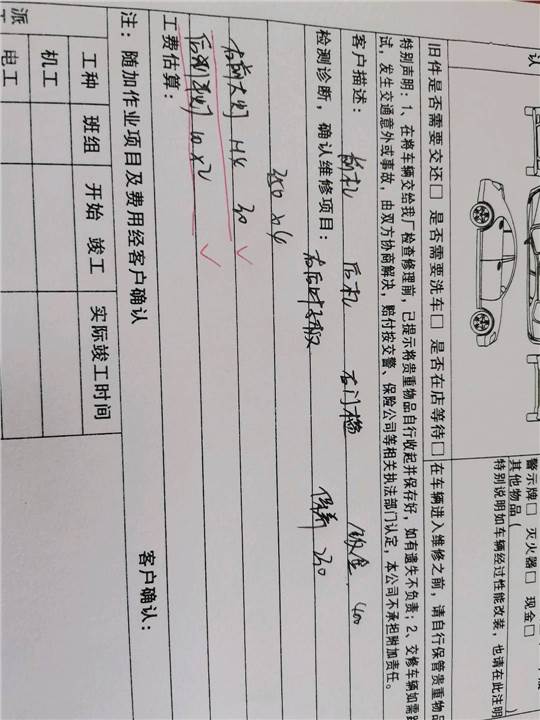 认
警示牌□ 灭火器□ 现金□
其他物品（
特别说明如车辆经过性能改装，也请在此注明
旧件是否需要交还□ 是否需要洗车□ 是否在店等待□ 在车辆进入维修之前，请自行保管贵重物品
特别声明：1、在将车辆交给我厂检查修理前，已提示将贵重物品自行收起并保存好，如有遗失不负责；2、交修车辆如需路
试，发生交通意外或事故，由双方协商解决，赔付按交警、保险公司等相关执法部门认定，本公司不承担附加责任。
客户描述： 前杠 后杠 右门槛 钣金 400
检测诊断，确认维修项目： 右后叶子板 保养 230
350×4
右前大灯 H4 30
10×2
工费估算：
注：随加作业项目及费用经客户确认 客户确认：
派
工种 班组 开始 竣工 实际竣工时间
机工
电工